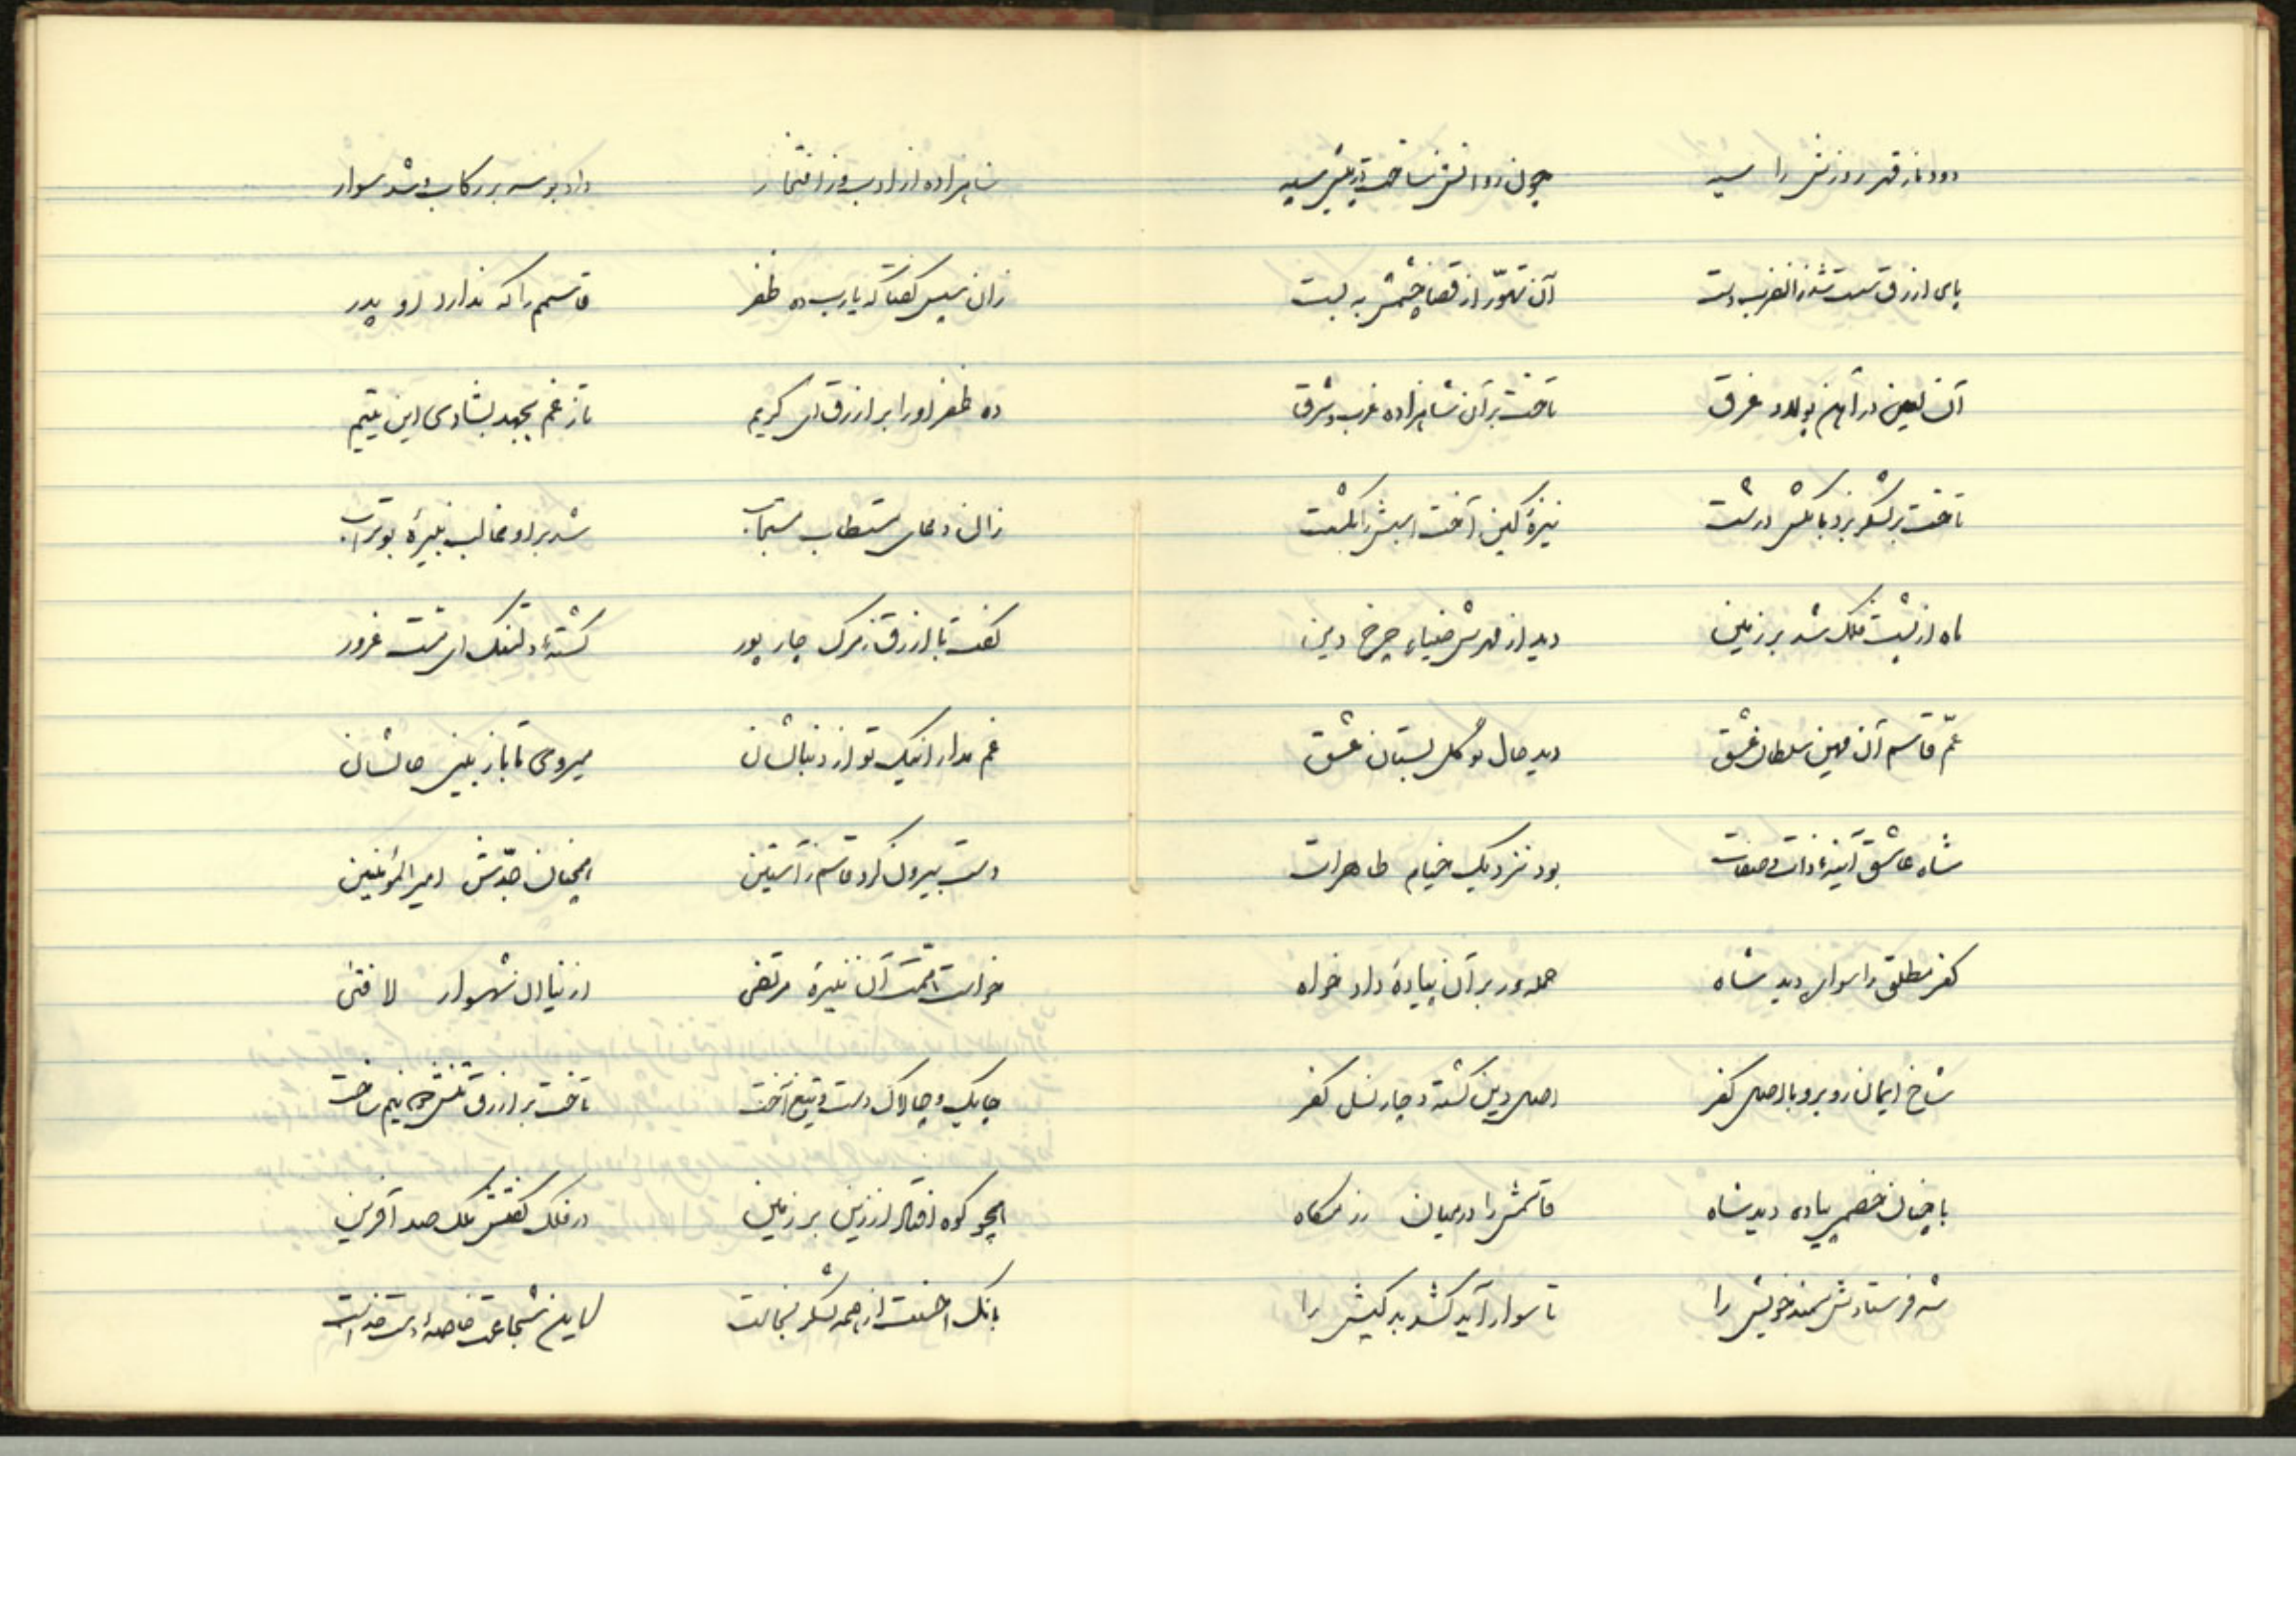 دود نار قهر روزش را سیه
چون زد آتش ساخت پیش سیه
پای ازرق سست شد زان ضرب دست
آن تهوّر از قضا چشمش به بست
آن لعین در آهن پولاد غرق
تاخت بر آن شاهزاده غرب و شرق
تاخت بر لشکر بزد بانگش درشت
نیزهٔ کین آخت اسبش را بکشت
ماه از پشت فلک شد بر زمین
دید از مهرش ضیاء چرخ دین
عمّ قاسم آن مهین سلطان عشق
دید حال نو گل بستان عشق
شاه عاشق آینهٔ ذات و صفات
بود نزدیک خیام طاهرات
کفر مطلق را سواره دید شاه
حمله‌ور بر آن پیادهٔ داد خواه
شاخ ایمان روبرو با اصل کفر
اصل دین گشته دچار نسل کفر
با چنان خصمی پیاده دید شاه
قاسمش را در میان رزمگاه
شه فرستادش سمند خویش را
تا سوار آید کشد بد کیش را
شاهزاده از ادب وز افتخار
داد بوسه بر رکاب و شد سوار
زان سپس گفتا که یا رب ده ظفر
قاسم را که ندارد او پدر
ده ظفر او را بر ازرق ای کریم
تا ز غم بجهد بشادی این یتیم
زان دعای مستطاب مستجاب
شد بر او غالب نبیرهٔ بوتراب
گفت با ازرق ز مرگ چار پور
گشتهٔ دلتنگ ای مست غرور
غم مدار اینک تو از دنبالشان
میروی تا باز بینی حالشان
دست بیرون کرد قاسم ز آستین
همچنان جدّش امیرالمؤمنین
خواست همّت آن نبیرهٔ مرتضی
از نیای آن شهسوار لا فتی
چابک و چالاک دست و تیغ آخت
تاخت بر ازرق تنش دو نیم ساخت
همچو کوه افتاد از زین بر زمین
در فلک گفتش ملک صد آفرین
بانگ احسنت از همه لشکر بخاست
کاین شجاعت خاصهٔ دست خداست